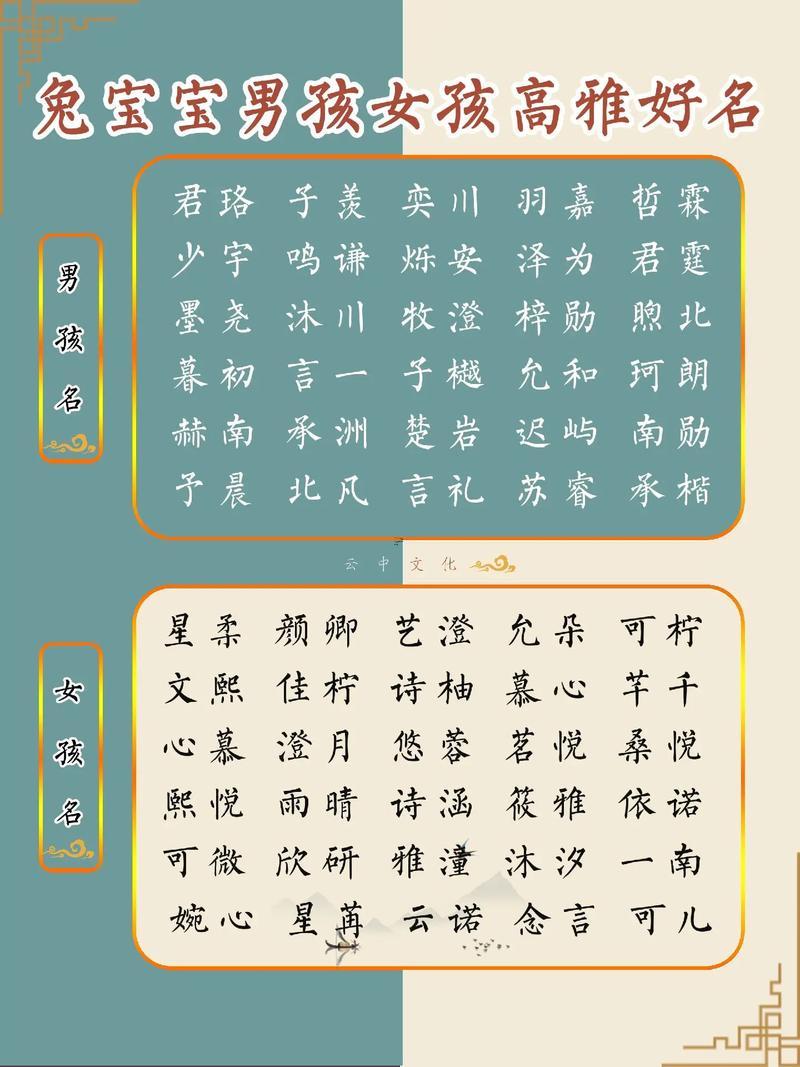 兔宝宝男孩女孩高雅好名
男孩名
君珞 子羡 奕川 羽嘉 哲霖
少宇 鸣谦 烁安 泽为 君霆
墨尧 沐川 牧澄 梓勋 煦北
暮初 言一 子樾 允和 珂朗
赫南 承洲 楚岩 迟屿 南勋
予晨 北凡 言礼 苏睿 承楷
云中文化
女孩名
星柔 颜卿 艺澄 允朵 可柠
文熙 佳柠 诗柚 慕心 芊千
心慕 澄月 悠蓉 茗悦 桑悦
熙悦 雨晴 诗涵 筱雅 依诺
可微 欣研 雅潼 沐汐 一南
婉心 星苒 云诺 念言 可儿